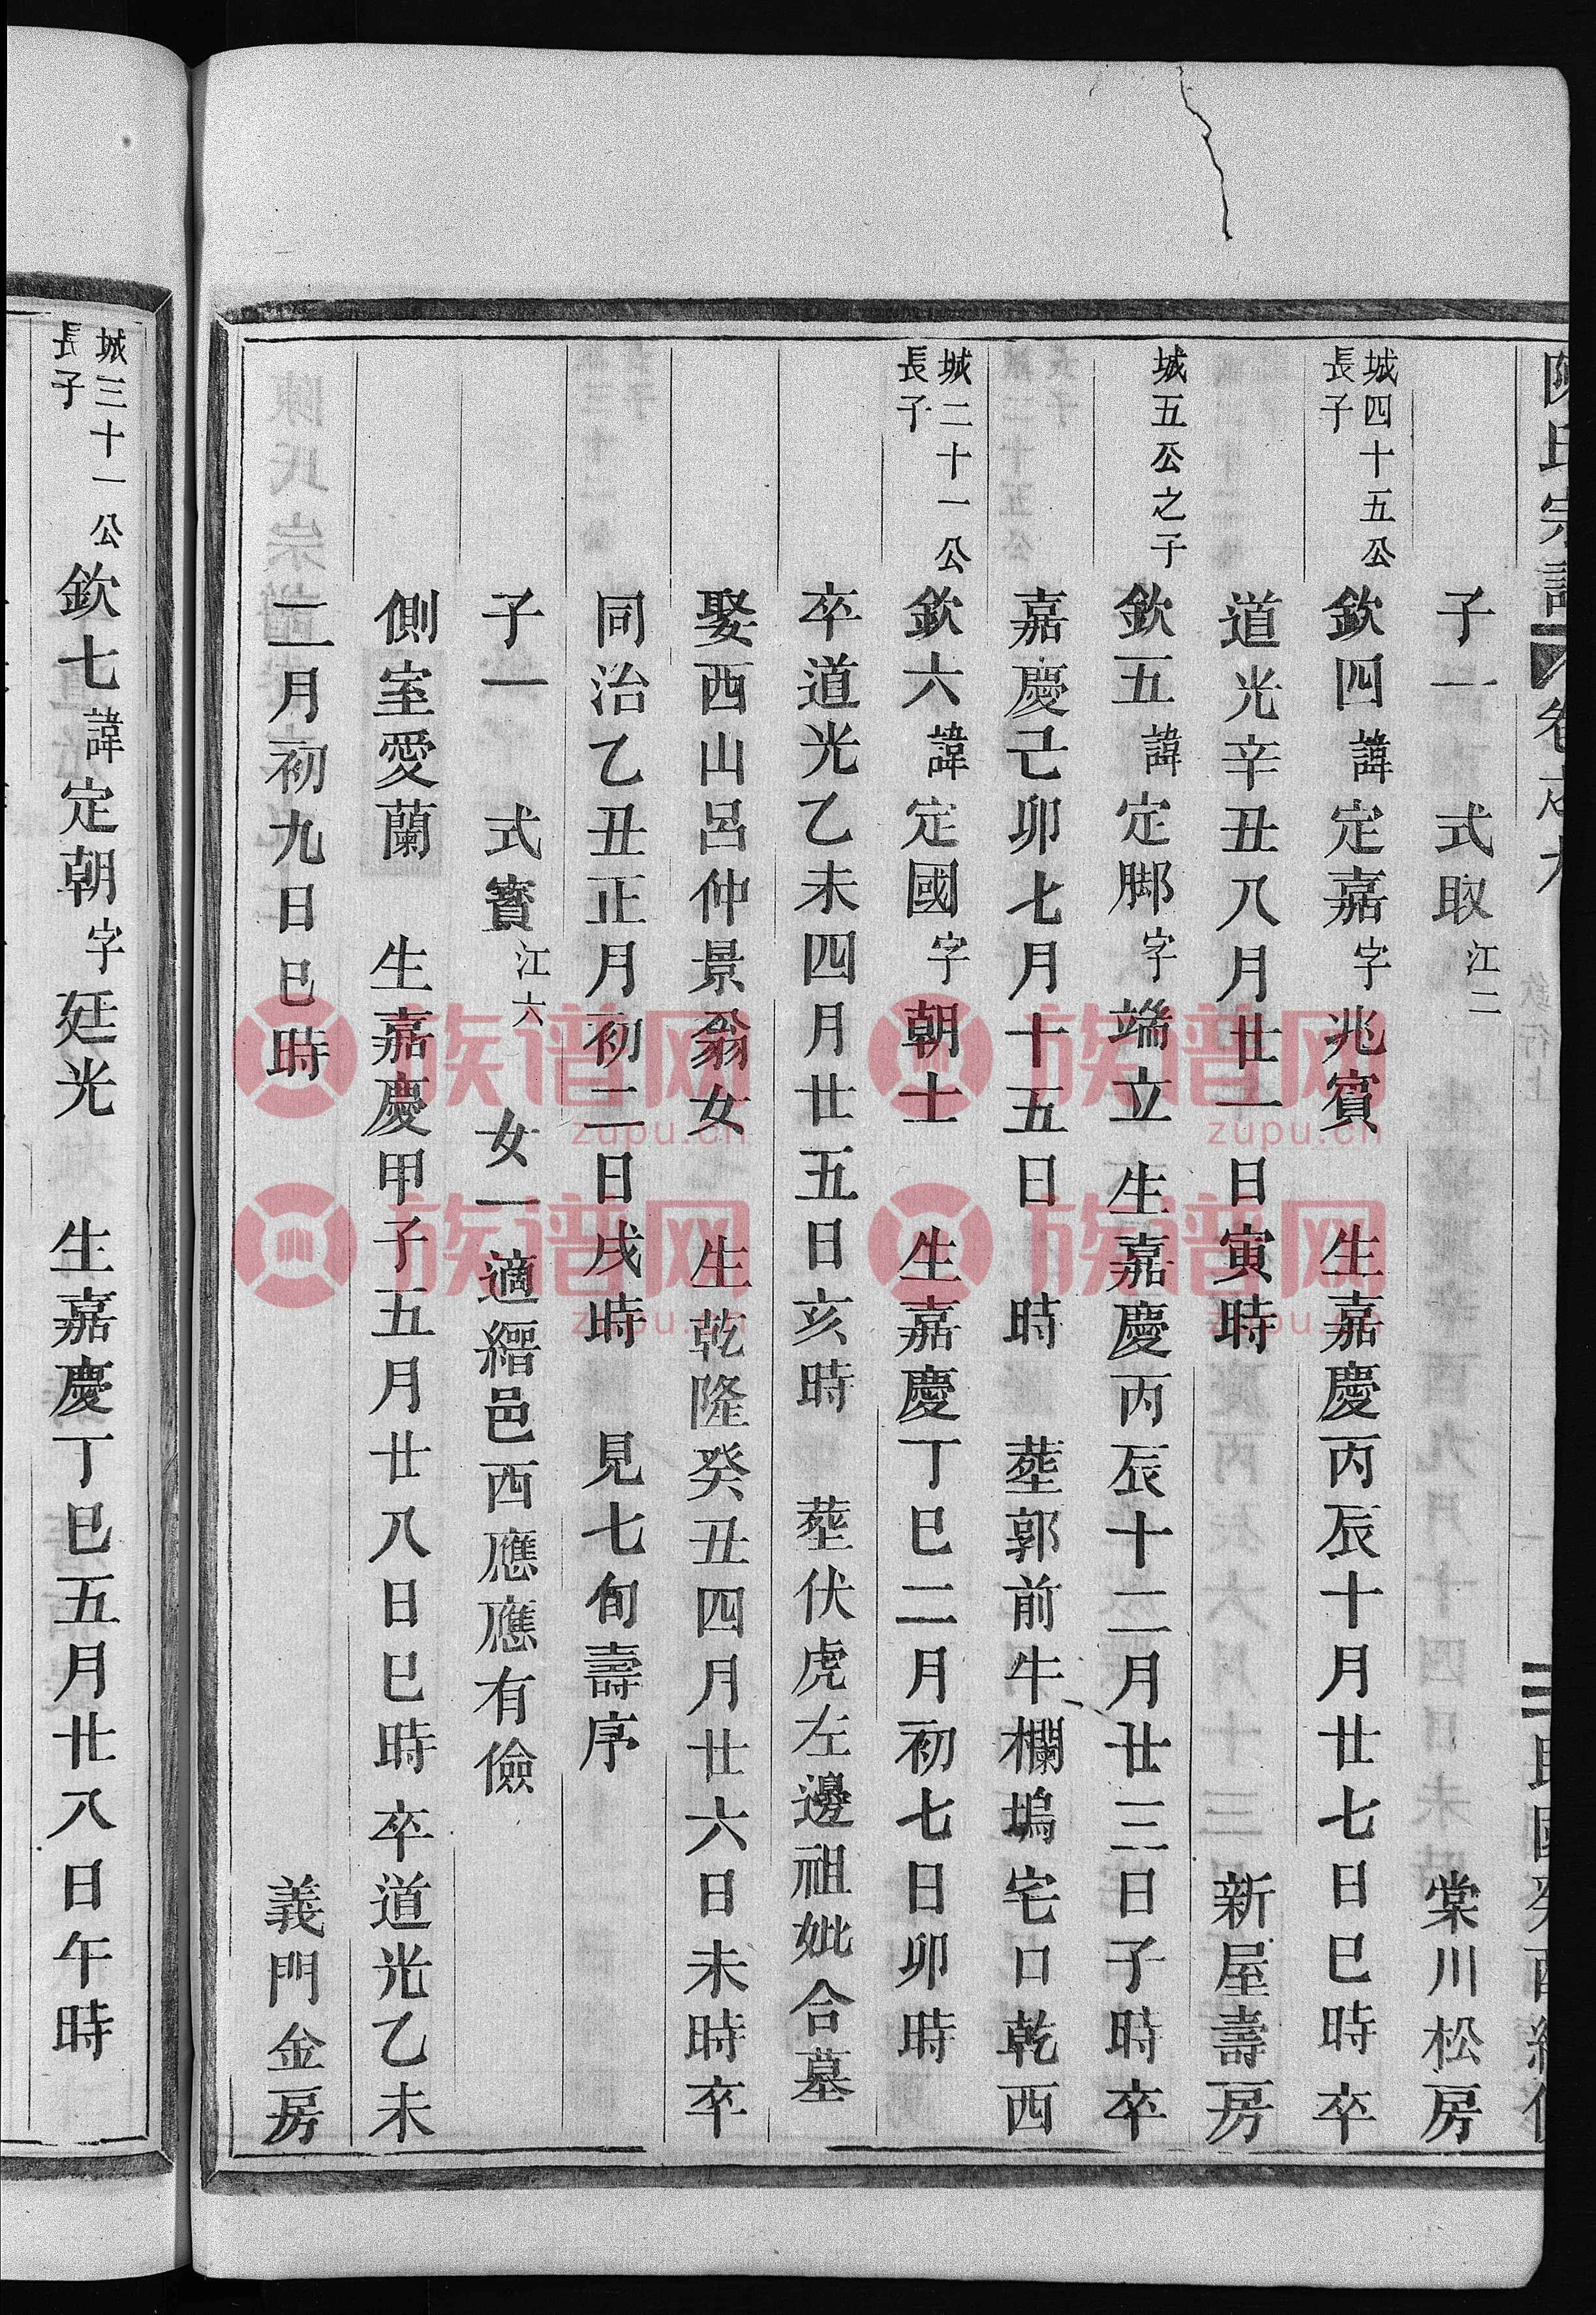 子一 式取 江二 棠川松房
城四十五公長子 欽四 諱定嘉 字兆賓 生嘉慶丙辰十月廿七日巳時卒
道光辛丑八月廿一日寅時 新屋壽房
城五公之子 欽五 諱定脚 字端立 生嘉慶丙辰十二月廿三日子時卒
嘉慶己卯七月十五日 時 塟郭前牛欄塢宅口乾西
城二十一公長子 欽六 諱定國 字朝士 生嘉慶丁巳二月初七日卯時
卒道光乙未四月廿五日亥時 塟伏虎左邊祖妣合墓
娶西山呂仲景翁女 生乾隆癸丑四月廿六日未時卒
同治乙丑正月初二日戌時 見七旬壽序
子一 式寶 江六 女一適縉邑西應應有儉
側室愛蘭 生嘉慶甲子五月廿八日巳時卒道光乙未
二月初九日巳時 義門金房
城三十一公長子 欽七 諱定朝 字廷光 生嘉慶丁巳五月廿八日午時
族谱网
zupu.cn
族谱网
zupu.cn
族谱网
zupu.cn
族谱网
zupu.cn